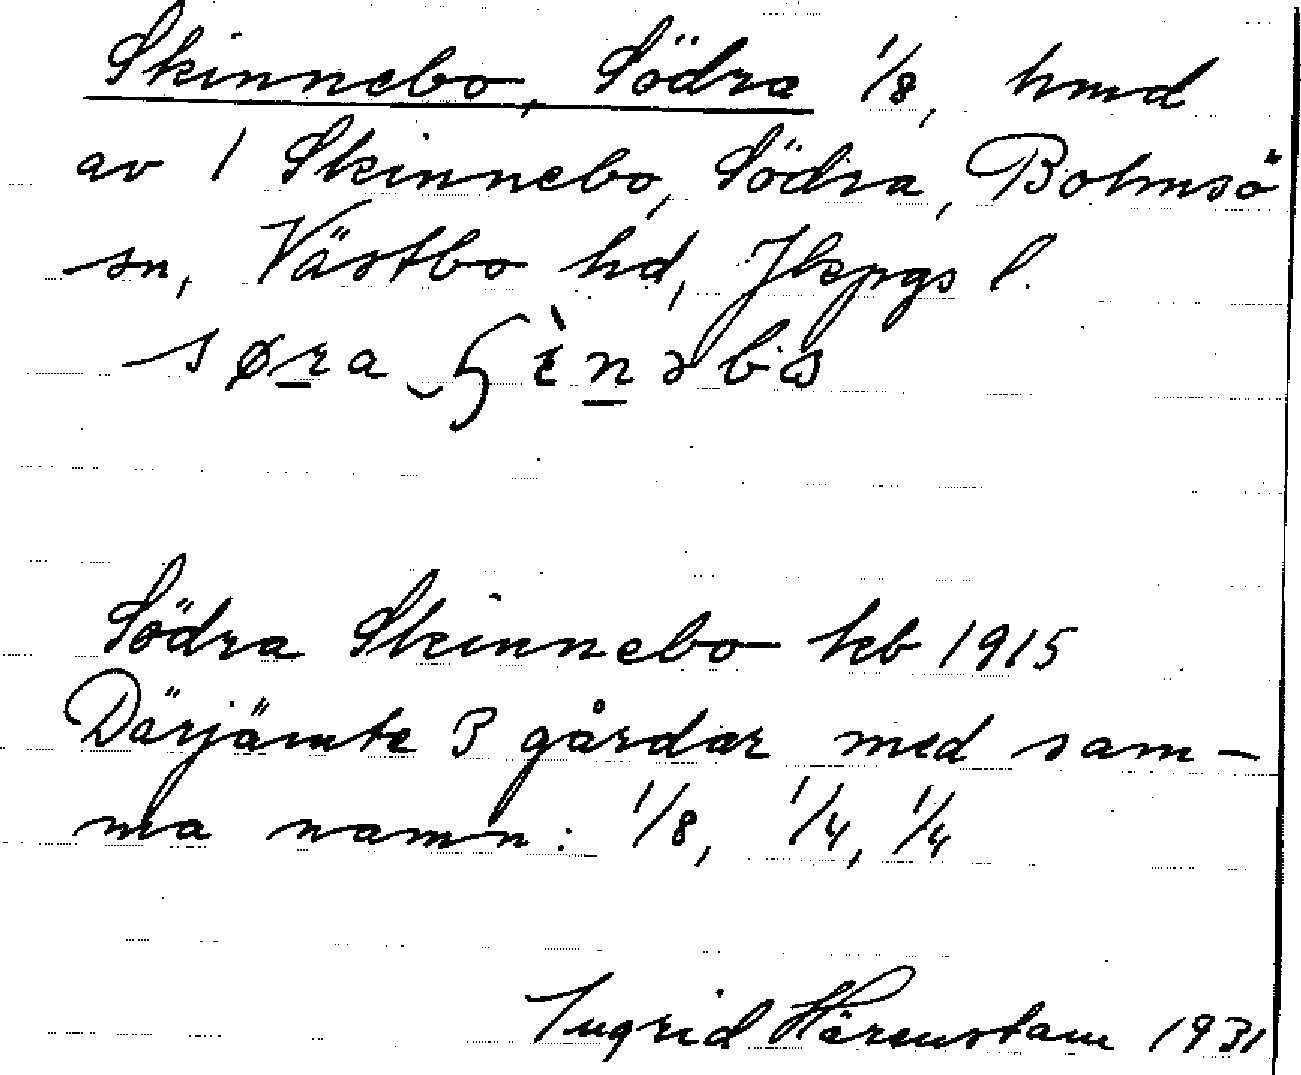 Skinnebo, Södra 1/8, hmd
av 1 Skinnebo, Södra, Bolmsö
sn, Västbo hd, Jkpgs l.
Södra Skinnebo kb 1915
Därjämte 3 gårdar med sam-
ma namn: 1/8, 1/4, 1/4
Ingrid Härenstam 1931